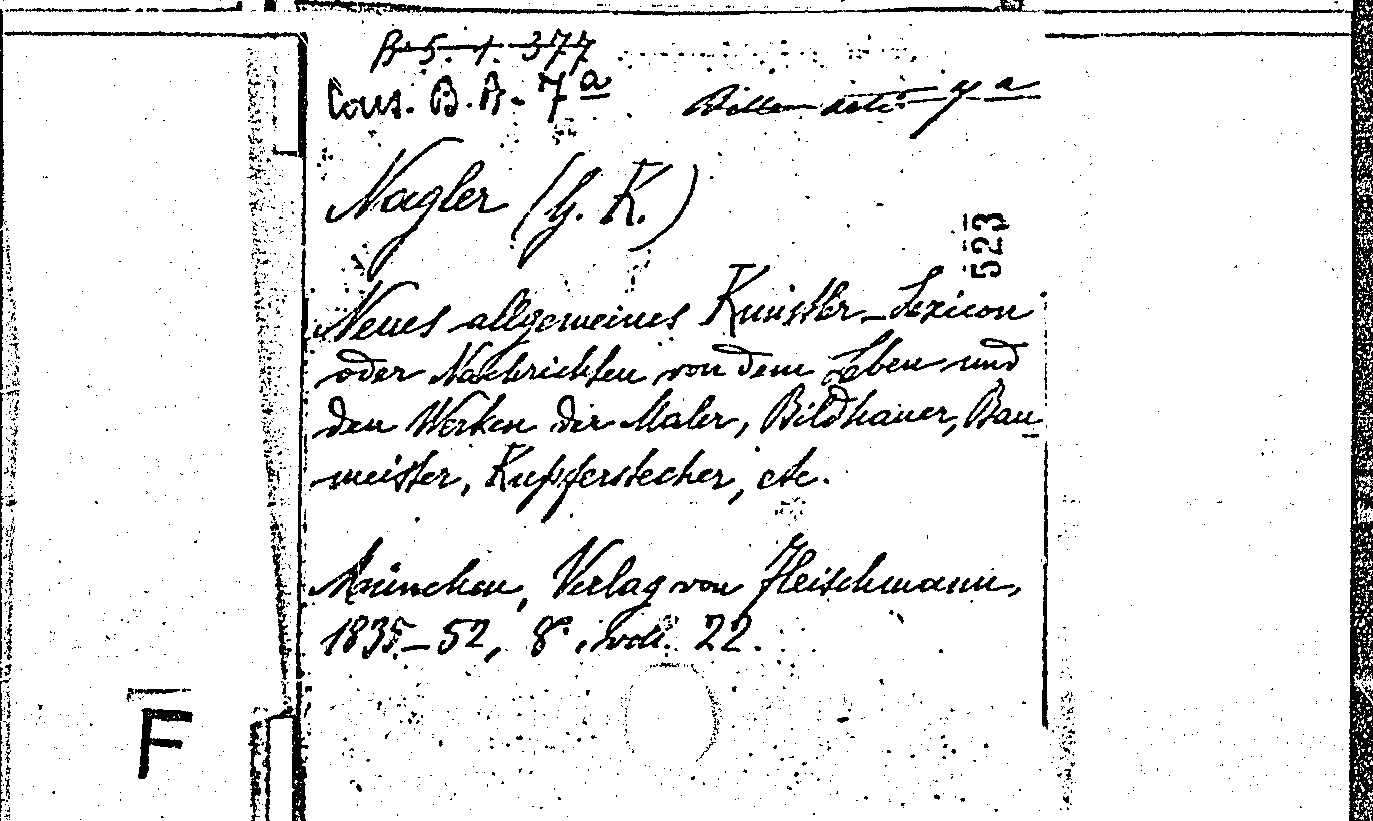 B. 5. 1. 377
Cons. B.A. 7ª
7ª
Nagler (G. K.)
523
Neues allgemeines Künstler-Lexicon
oder Nachrichten von dem Leben und
den Werken der Maler, Bildhauer, Bau
meister, Kupferstecher, etc.
München, Verlag von Fleischmann,
1835-52, 8º, voll. 22.
F